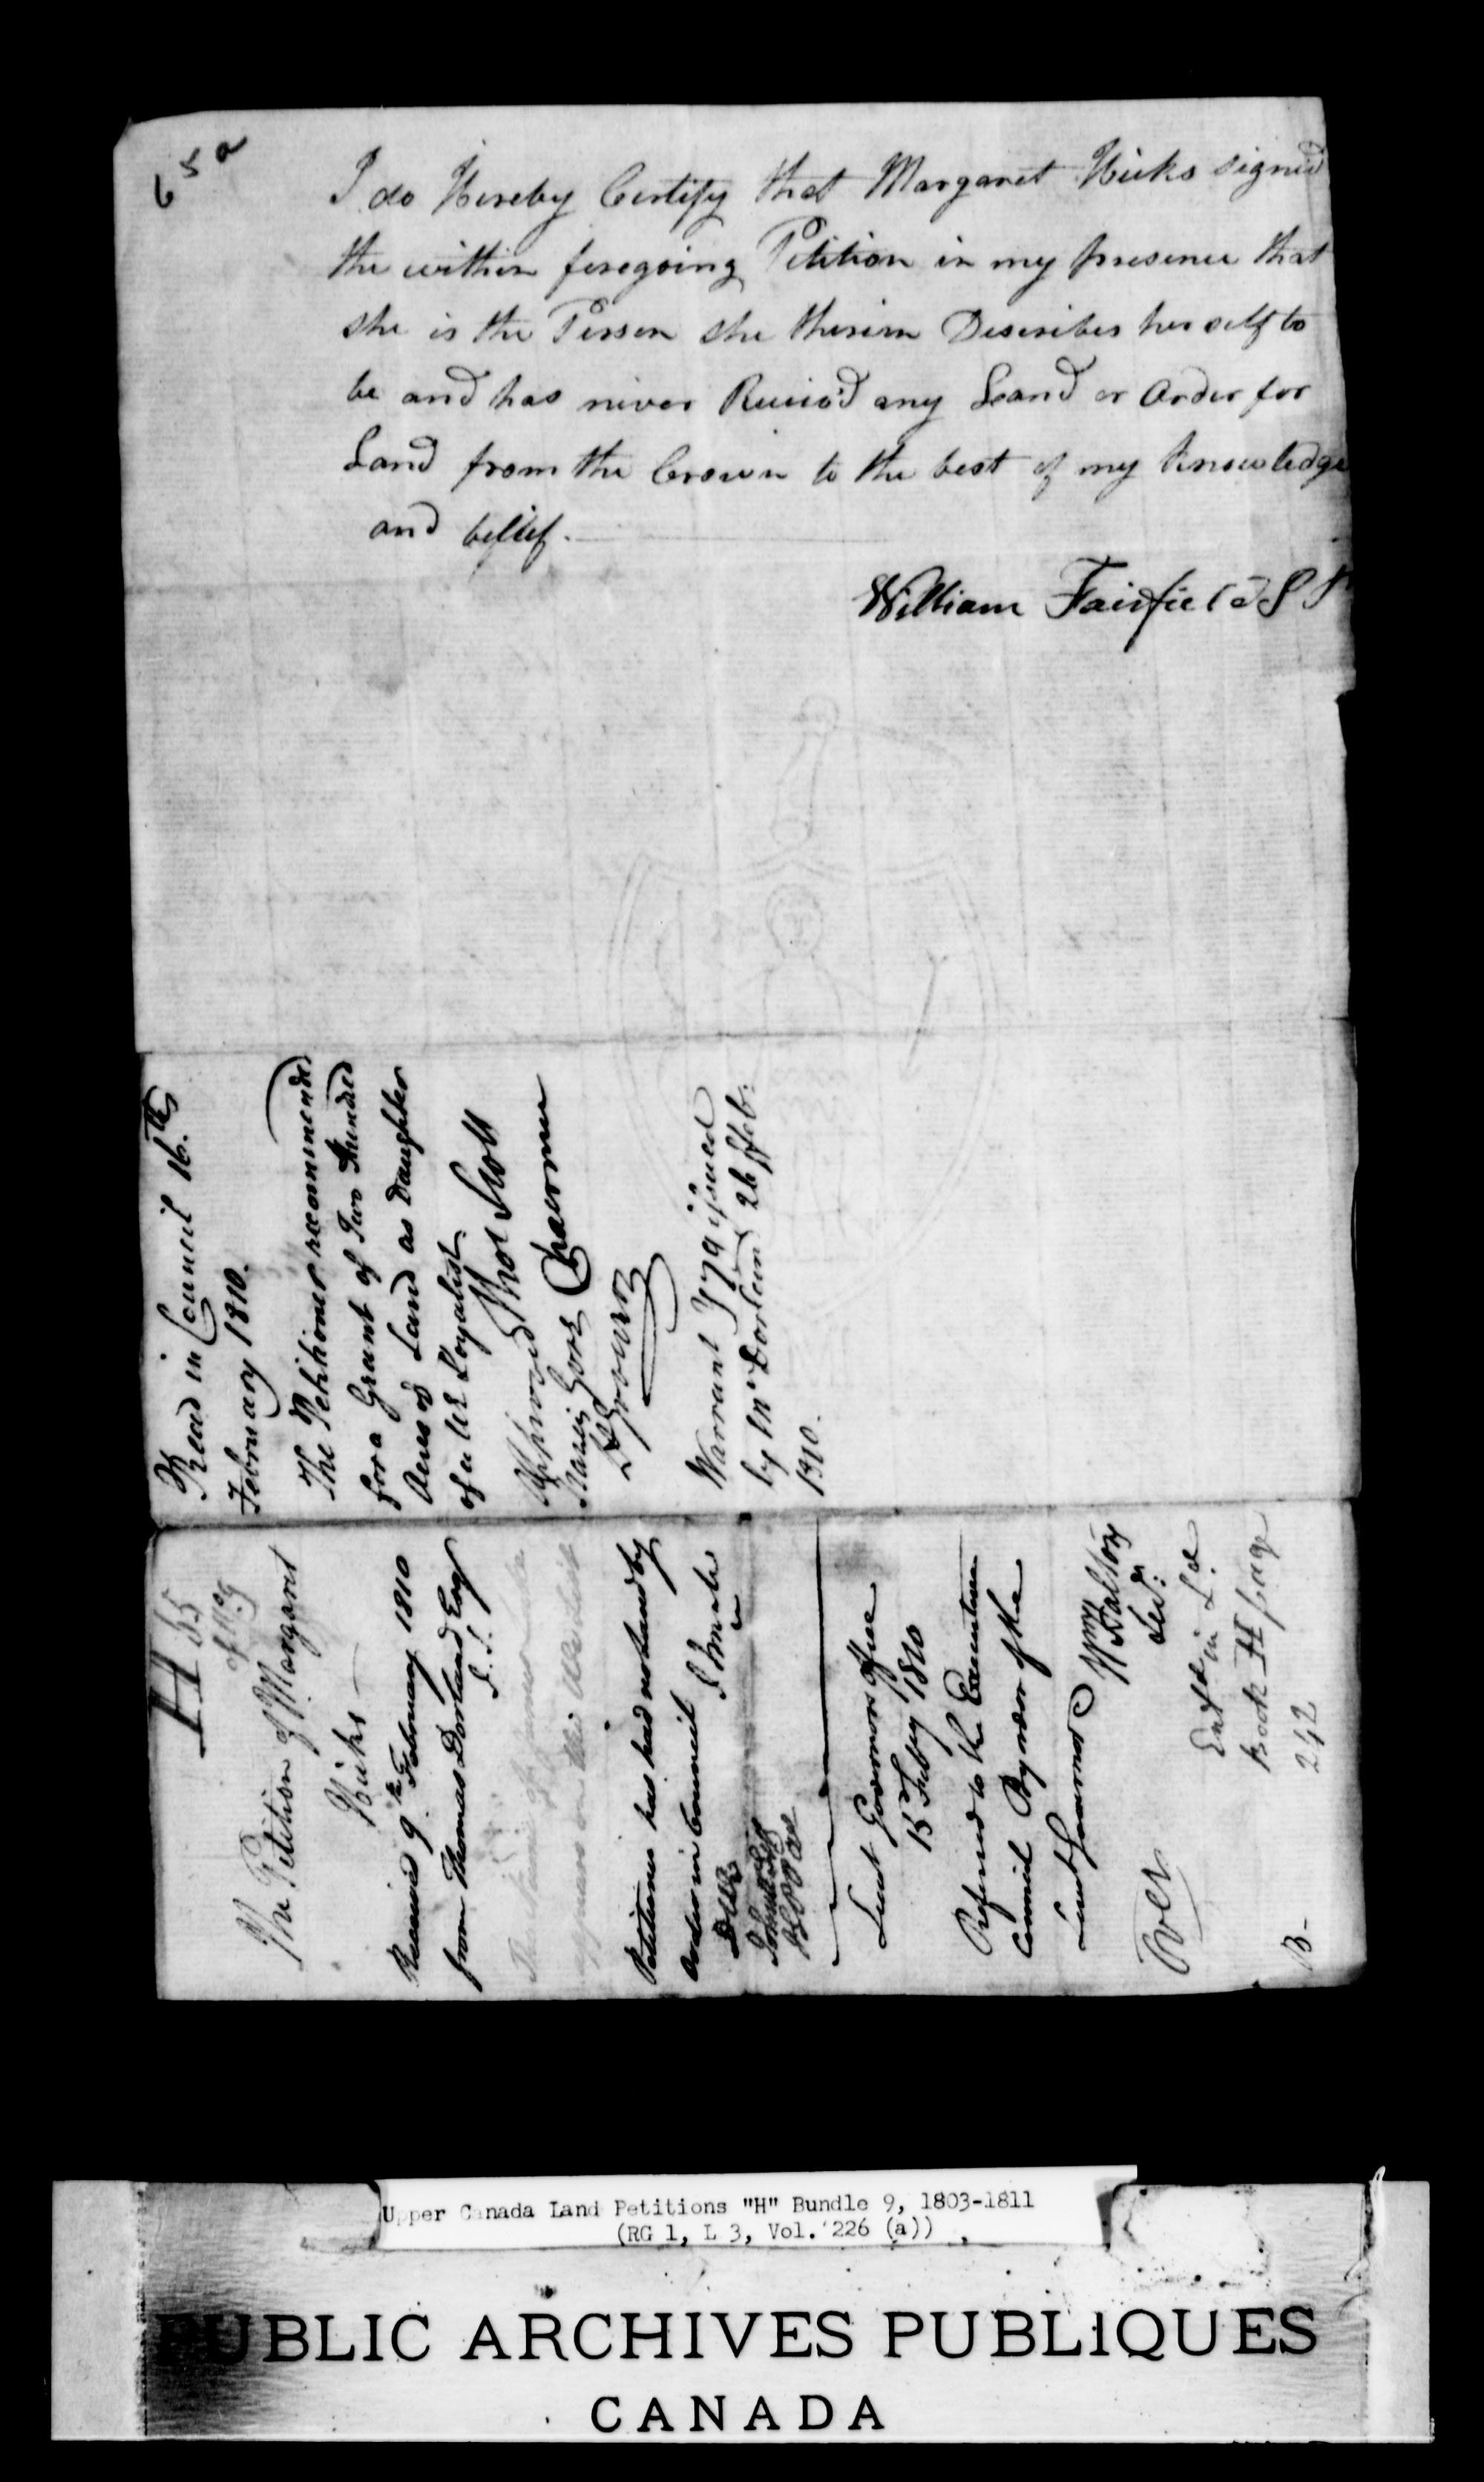 65a
I do Hereby Certify that Margaret Hicks signed
the within foregoing Petition in my presence that
she is the Person she therein Describes herself to
be and has never Receiv'd any Land or Order for
Land from the Crown to the best of my Knowledge
and belief.
William Fairfield
Read in Council 16.th
February 1810.
The Petitioner recommended
for a Grant of Two Hundred
Acres of Land as Daughter
of a UE Loyalist
Thos Scott
Chairman
Approved
Francis Gore
Warrant issued
by Mr Dorland 26 Feb:
1810.
H 55
of H 9
The Petition of Margaret
Hicks
Received 9th February 1810
from Thomas Dorland Esqr
appears on the UE List
Petitioner has had no Land by
Order in Council
J Small
Lieut Governors Office
15 Feby 1810
Referred to the Executive
Council By order of the
Lieut Governor
Wm Halton
Secy
Entd in Ld
Book H page
242
Over
B-
Upper Canada Land Petitions "H" Bundle 9, 1803-1811
(RG 1, L 3, Vol. 226 (a))
PUBLIC ARCHIVES PUBLIQUES
CANADA